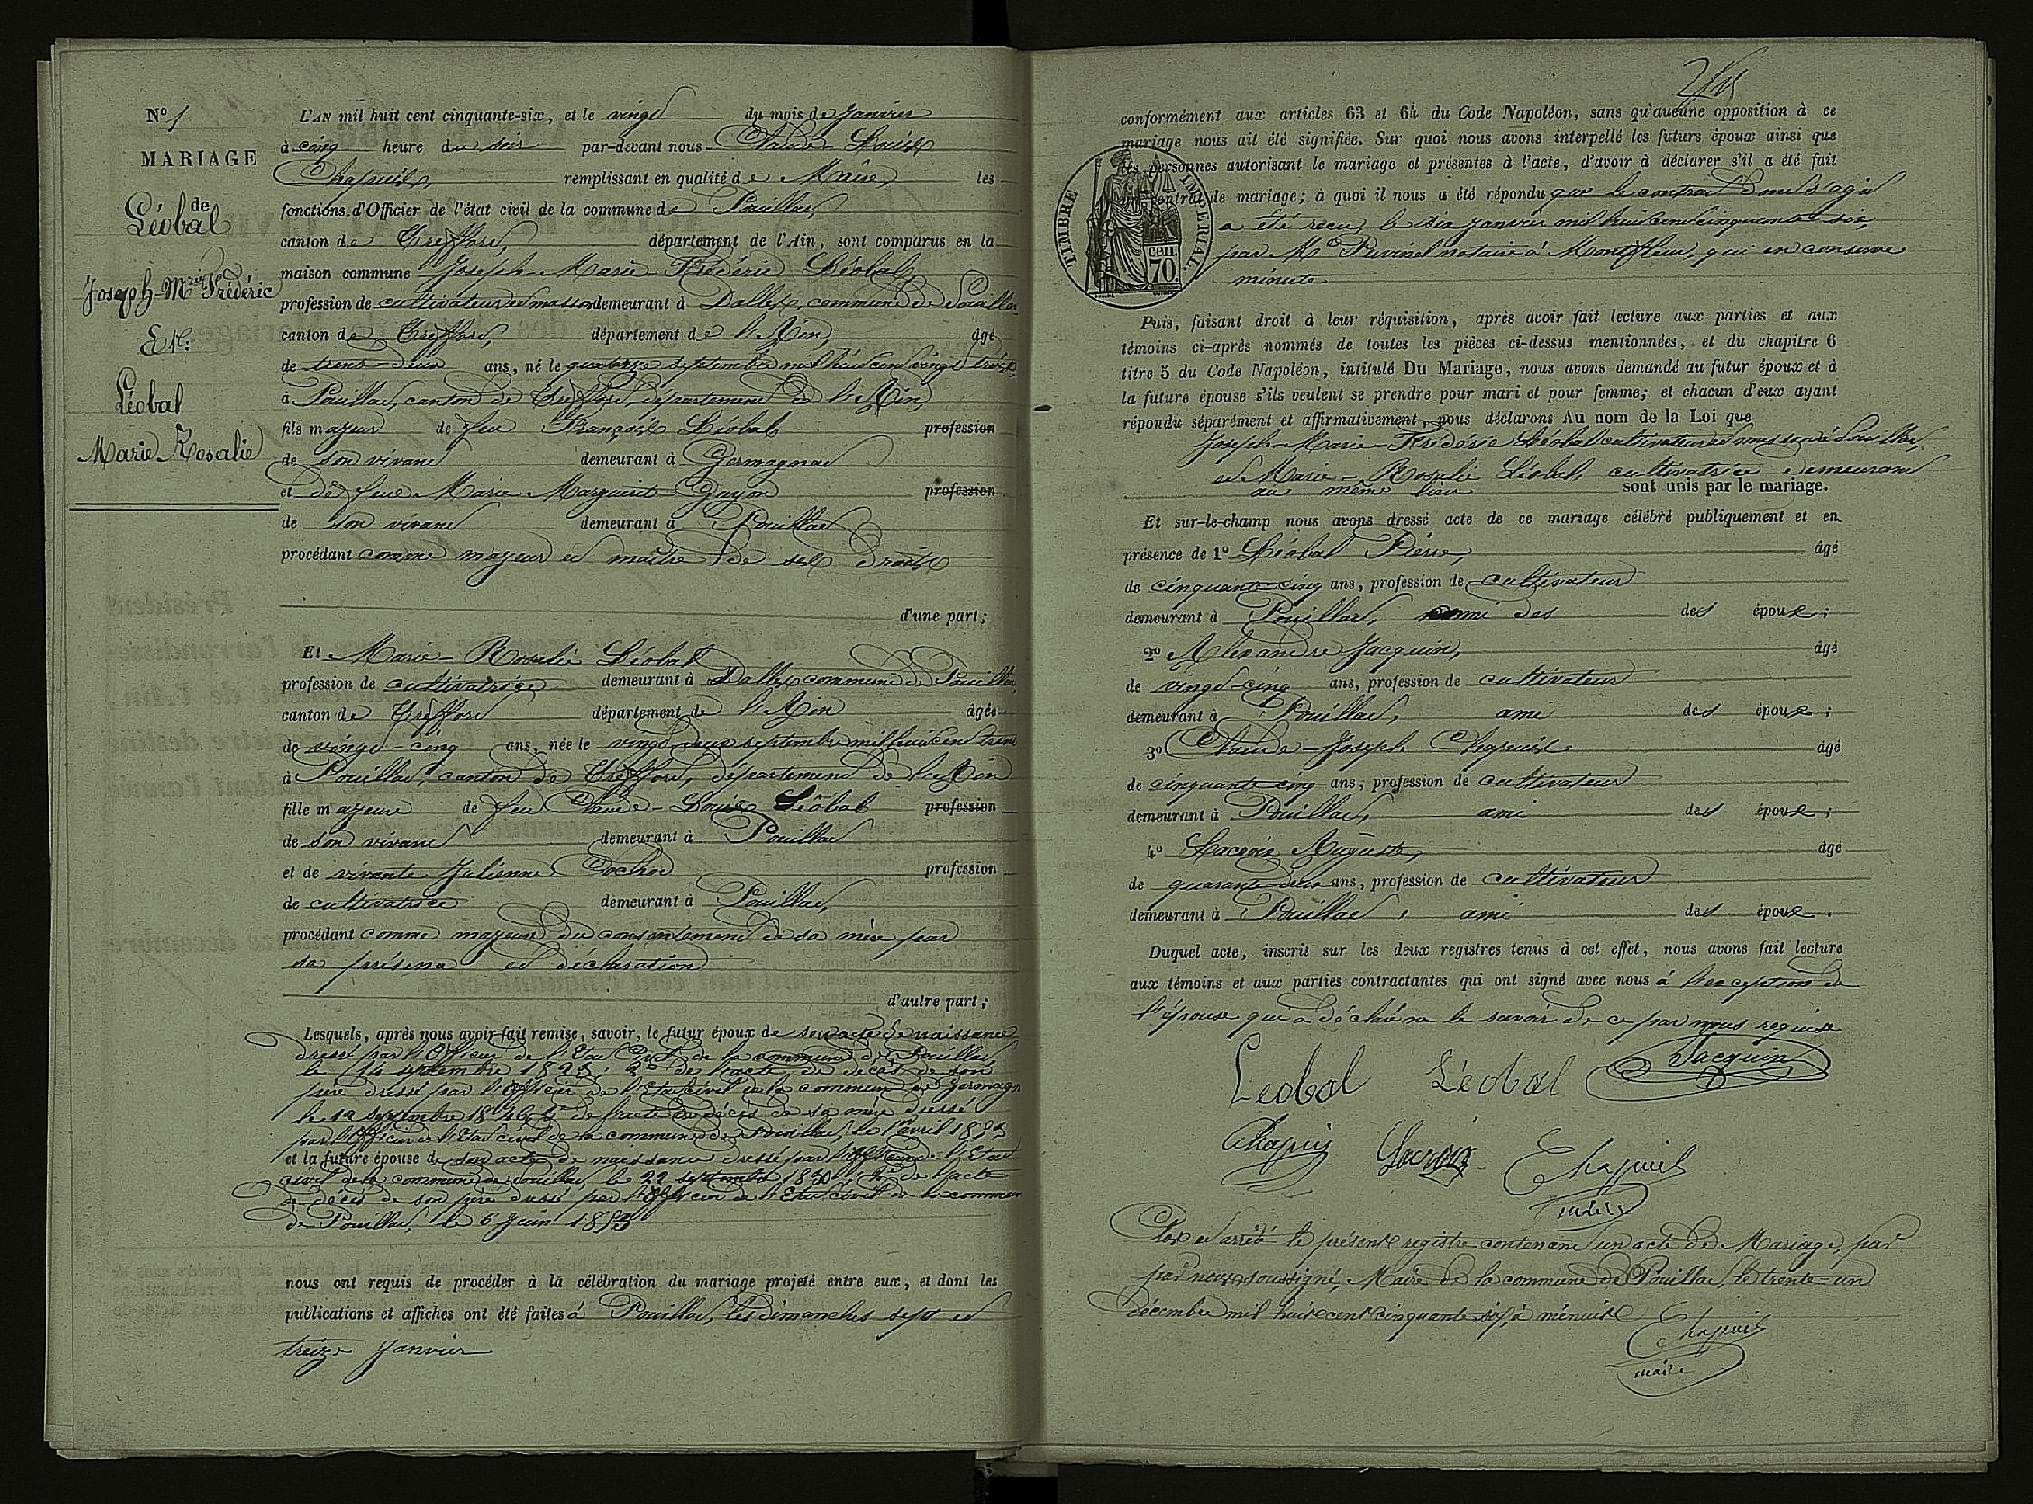 N° 1
MARIAGE
de
Léobal
Joseph-Mie Frédéric
Et
Léobal
Marie Rosalie
L'AN mil huit cent cinquante-six, et le vingt du mois de Janvier
à cinq heure du soir par-devant nous Claude Louis
Chapuis, remplissant en qualité de Maire les
fonctions d'Officier de l'état civil de la commune de Pouillat
canton de Treffort, département de l'Ain, sont comparus en la
maison commune Joseph-Marie Frédéric Léobal
profession de cultivateur et masson demeurant à Dalles, commune de Pouillat
canton de Treffort, département de l'Ain, âgé
de trente deux ans, né le quatorze septembre mil huit cent vingt trois
à Pouillat, canton de Treffort, département de l'Ain,
fils majeur de feu François Léobal profession
de son vivant demeurant à Germagnat
et de feue Marie Marguerite Guyon profession
de son vivant demeurant à Pouillat
procédant comme majeur et maître de ses droits
d'une part;
Et Marie-Rosalie Léobal
profession de cultivatrice demeurant à Dalles commune de Pouillat
canton de Treffort département de l'Ain âgée
de vingt-cinq ans, née le vingt deux septembre mil huit cent trente
à Pouillat, canton de Treffort, département de l'Ain
fille majeure de feu Claude-Louis Léobal profession
de son vivant demeurant à Pouillat
et de vivante Julienne Cochet profession
de cultivatrice demeurant à Pouillat,
procédant comme majeure du consentement de sa mère par
sa présence et déclaration
d'autre part;
Lesquels, après nous avoir fait remise, savoir, le futur époux de son acte de naissance
dressé par l'Officier de l'Etat Civil de la commune de Pouillat
le 14 septembre 1823; 2° de l'acte de décès de son
père dressé par l'Officier de l'Etat civil de la commune de Germagnat
le 10 septembre de l'acte de décès de sa mère dressé
par l'Officier de l'Etat civil de la commune de Pouillat, le avril
et la future épouse de son acte de naissance dressé par l'Officier de l'Etat
civil de la commune de Pouillat le 22 septembre 1830; 2° de l'acte
de décès de son père dressé par l'Officier de l'Etat civil de la commune
de Pouillat, le 6 Juin
nous ont requis de procéder à la célébration du mariage projeté entre eux, et dont les
publications et affiches ont été faites à Pouillat, les dimanches sept et
treize Janvier
conformément aux articles 63 et 64 du Code Napoléon, sans qu'aucune opposition à ce
mariage nous ait été signifiée. Sur quoi nous avons interpellé les futurs époux ainsi que
les personnes autorisant le mariage et présentes à l'acte, d'avoir à déclarer s'il a été fait
un contrat de mariage; à quoi il nous a été répondu que le contrat dont il s'agit
a été reçu le dix janvier mil huit cent cinquante six,
par Me notaire à Montfleur, qui en conserve
minute.
TIMBRE IMPERIAL
cen
70
Puis, faisant droit à leur réquisition, après avoir fait lecture aux parties et aux
témoins ci-après nommés de toutes les pièces ci-dessus mentionnées, et du chapitre 6
titre 5 du Code Napoléon, intitulé Du Mariage, nous avons demandé au futur époux et à
la future épouse s'ils veulent se prendre pour mari et pour femme; et chacun d'eux ayant
répondu séparément et affirmativement, nous déclarons Au nom de la Loi que
Joseph-Marie-Frédéric Léobal cultivateur et masson à Pouillat,
et Marie-Rosalie Léobal, cultivatrice demeurant
au même lieu sont unis par le mariage.
Et sur-le-champ nous avons dressé acte de ce mariage célébré publiquement et en
présence de 1° Léobal Pierre, âgé
de cinquante-cinq ans, profession de cultivateur
demeurant à Pouillat, ami des des époux;
2° Alexandre Jacquin, âgé
de vingt-cinq ans, profession de cultivateur
demeurant à Pouillat, ami des époux;
3° Claude-Joseph Chapuis âgé
de cinquante cinq ans, profession de cultivateur
demeurant à Pouillat, ami des époux;
4° Lacroix Auguste, âgé
de quarante deux ans, profession de cultivateur
demeurant à Pouillat, ami des époux.
Duquel acte, inscrit sur les deux registres tenus à cet effet, nous avons fait lecture
aux témoins et aux parties contractantes qui ont signé avec nous à l'exception de
l'épouse qui a déclaré ne le savoir de ce par nous requise
Léobal Léobal Jacquin
Chapuis Lacroix Chapuis
maire
Clos et arrêté le présent registre contenant un acte de Mariage, par
par nous soussigné, Maire de la commune de Pouillat, le trente-un
décembre mil huit cent cinquante six, à minuit
Chapuis
maire